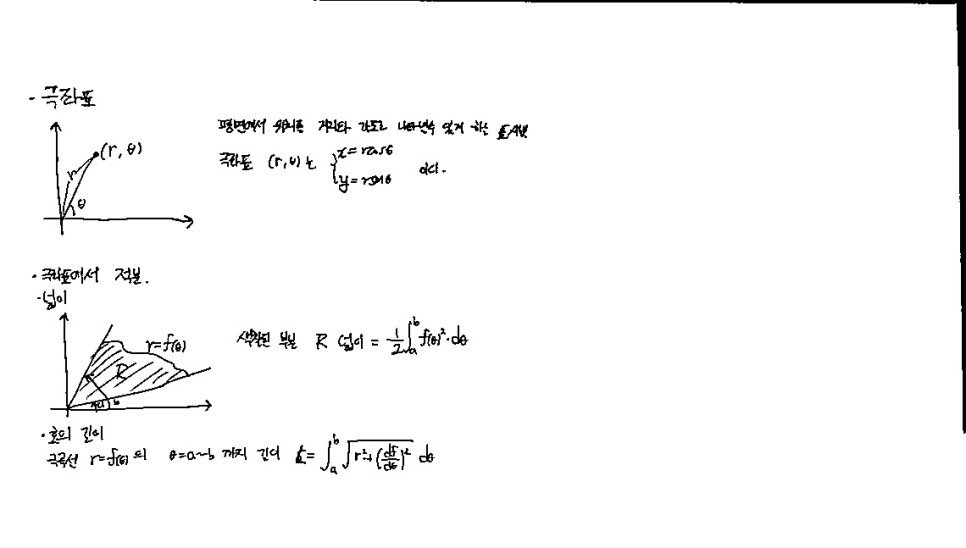 · 극좌표
(r, θ)
r
θ
평면에서 위치를 거리와 각도로 나타낼수 있게 하는
극좌표 (r, θ)는 { x = rcosθ
y = rsinθ 이다.
· 극좌표에서 적분.
· 넓이
r=f(θ)
R
색칠된 부분 R 넓이 = 1/2 ∫_a^b f(θ)²·dθ
· 호의 길이
극곡선 r=f(θ) 의 θ=a~b 까지 길이 L = ∫_a^b √(r²+(dr/dθ)²) dθ